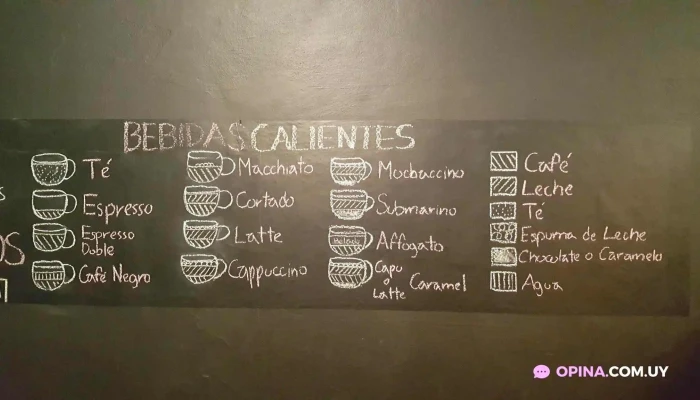 BEBIDAS CALIENTES
Té
Espresso
Espresso
Doble
Café Negro
Macchiato
Cortado
Latte
Cappuccino
Mochaccino
Submarino
Helado
Affogato
Capu
o
Latte
Caramel
Café
Leche
Té
Espuma de Leche
Chocolate o Caramelo
Agua
OPINA.COM.UY